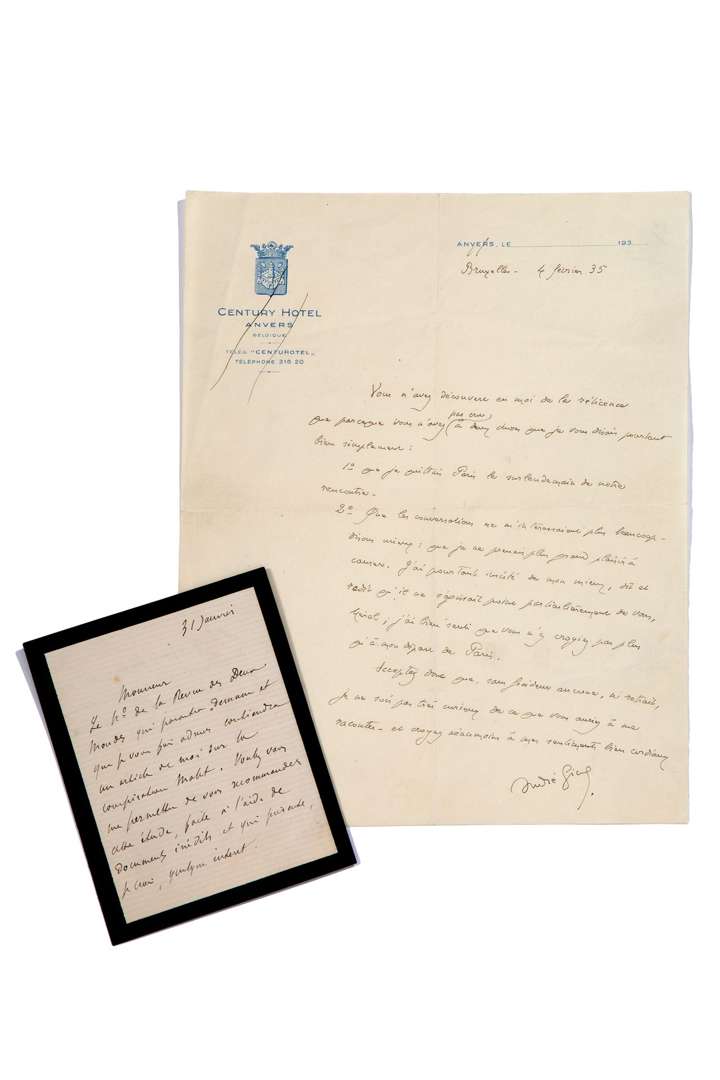 CENTURY HOTEL
ANVERS
BELGIQUE
TÉLÉG. "CENTUROTEL"
TÉLÉPHONE 316 20
ANVERS, LE 193
Bruxelles - 4 février 35
Vous n'avez découvert en moi de la réticence
que parceque vous n'avez pas cru à deux choses que je vous disais pourtant
bien simplement :
1º que je quittais Paris le surlendemain de notre
rencontre.
2º Que les conversations ne m'intéressaient plus beaucoup -
disons mieux : que je ne prenais plus grand plaisir à
causer. J'ai pourtant insisté de mon mieux, dit et
redit qu'il ne s'agissait point particulièrement de vous,
; j'ai bien senti que vous n'y croyiez pas plus
qu'à mon départ de Paris.
Acceptez donc que, sans froideur aucune, ni retrait,
je ne sois pas très curieux de ce que vous auriez à me
raconter - et croyez néanmoins à mes sentiments bien cordiaux
André Gide.
31 Janvier
Monsieur
Le Nº de la Revue des Deux
Mondes qui paraîtra demain et
que je vous fais adresser contiendra
un article de moi sur la
conspiration Malet. Voulez vous
me permettre de vous recommander
cette étude, faite à l'aide de
documents inédits et qui présente,
je crois, quelque intérêt.